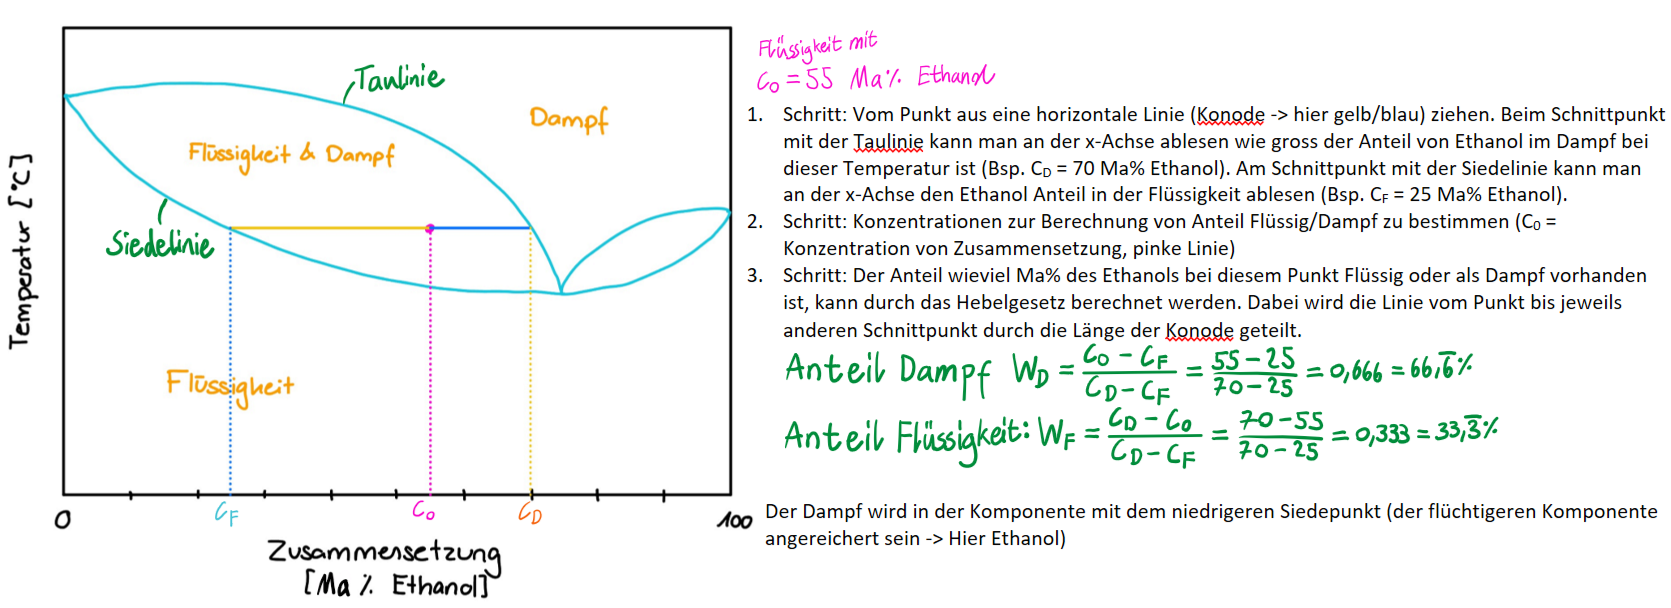 Flüssigkeit mit
C₀ = 55 Ma% Ethanol
Taulinie
Dampf
Flüssigkeit & Dampf
Siedelinie
Flüssigkeit
Temperatur [°C]
0
C_F
C₀
C_D
100
Zusammensetzung
[Ma% Ethanol]
1. Schritt: Vom Punkt aus eine horizontale Linie (Konode -> hier gelb/blau) ziehen. Beim Schnittpunkt
mit der Taulinie kann man an der x-Achse ablesen wie gross der Anteil von Ethanol im Dampf bei
dieser Temperatur ist (Bsp. C_D = 70 Ma% Ethanol). Am Schnittpunkt mit der Siedelinie kann man
an der x-Achse den Ethanol Anteil in der Flüssigkeit ablesen (Bsp. C_F = 25 Ma% Ethanol).
2. Schritt: Konzentrationen zur Berechnung von Anteil Flüssig/Dampf zu bestimmen (C₀ =
Konzentration von Zusammensetzung, pinke Linie)
3. Schritt: Der Anteil wieviel Ma% des Ethanols bei diesem Punkt Flüssig oder als Dampf vorhanden
ist, kann durch das Hebelgesetz berechnet werden. Dabei wird die Linie vom Punkt bis jeweils
anderen Schnittpunkt durch die Länge der Konode geteilt.
Anteil Dampf W_D = (C₀ - C_F)/(C_D - C_F) = (55-25)/(70-25) = 0,666 = 66,6̅%
Anteil Flüssigkeit: W_F = (C_D - C₀)/(C_D - C_F) = (70-55)/(70-25) = 0,333 = 33,3̅%
Der Dampf wird in der Komponente mit dem niedrigeren Siedepunkt (der flüchtigeren Komponente
angereichert sein -> Hier Ethanol)